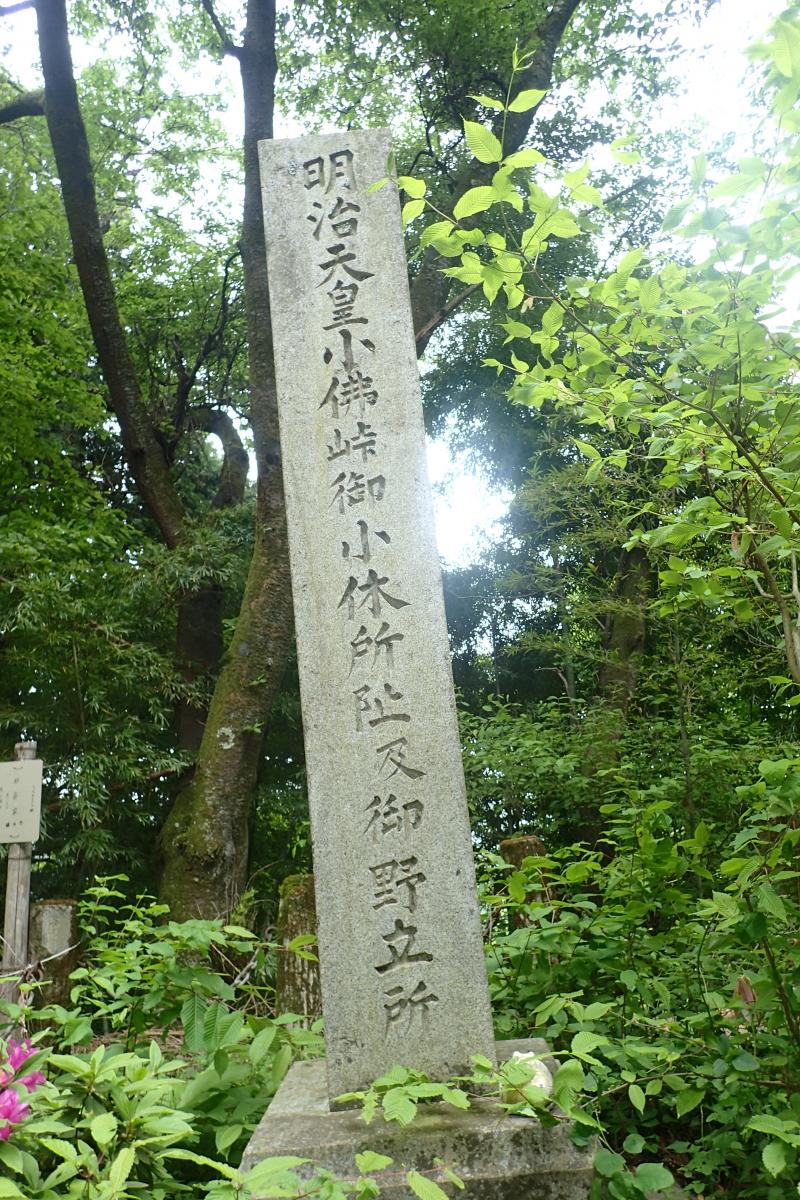 明治天皇小佛峠御小休所阯及御野立所